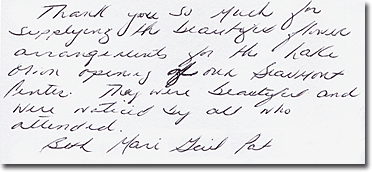 Thank you so much for
supplying the beautiful flower
arrangements for the Lake
Orion opening of our Beaumont
Center. They were beautiful and
were noticed by all who
attended.
Beth Mari Gail Pat